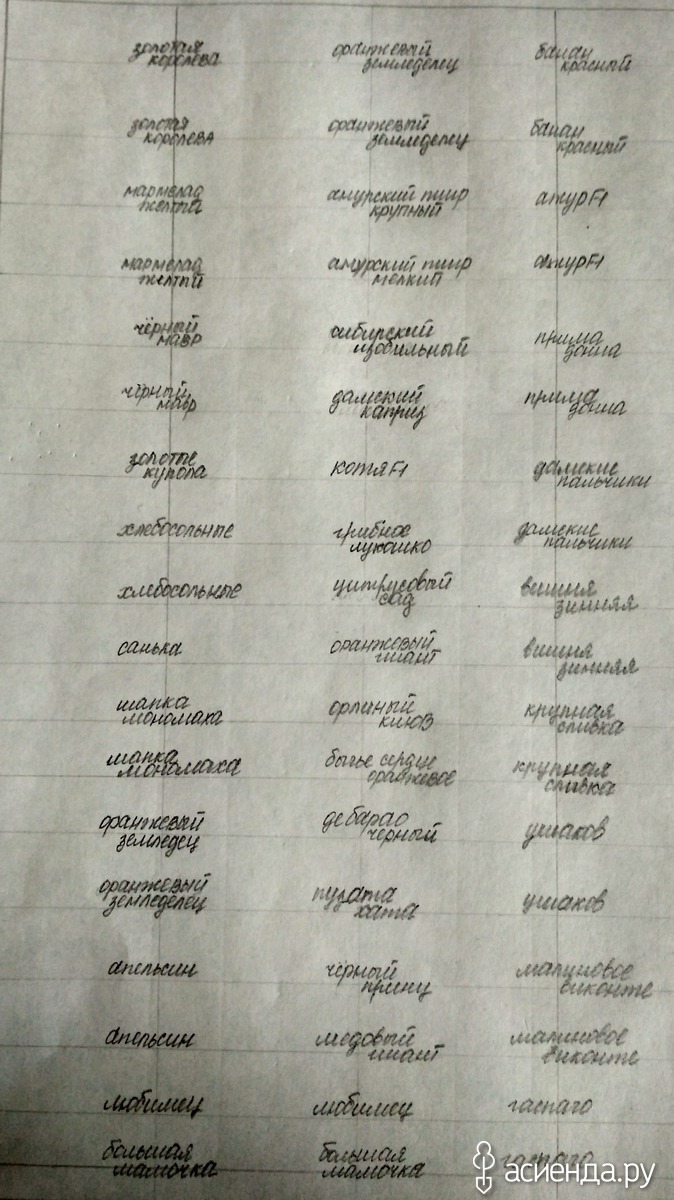 золотая
королева
оранжевый
земледелец
банан
красный
золотая
королева
оранжевый
земледелец
банан
красный
мармелад
желтый
амурский тигр
крупный
атур F1
мармелад
желтый
амурский тигр
мелкий
атур F1
чёрный
мавр
сибирский
изобильный
прима
донна
чёрный
мавр
дамский
каприз
прима
донна
золотые
купола
котя F1
дамские
пальчики
хлебосольные
грибное
лукошко
дамские
пальчики
хлебосольные
цитрусовый
сад
вишня
зимняя
санька
оранжевый
гигант
вишня
зимняя
шапка
мономаха
орлиный
клюв
крупная
сливка
шапка
мономаха
бычье сердце
оранжевое
крупная
сливка
оранжевый
земледец
де барао
чёрный
ушаков
оранжевый
земледелец
пузата
хата
ушаков
апельсин
чёрный
принц
малиновое
виконте
апельсин
медовый
гигант
малиновое
виконте
любимец
любимец
гаспачо
большая
мамочка
большая
мамочка
гаспачо
асиенда.ру